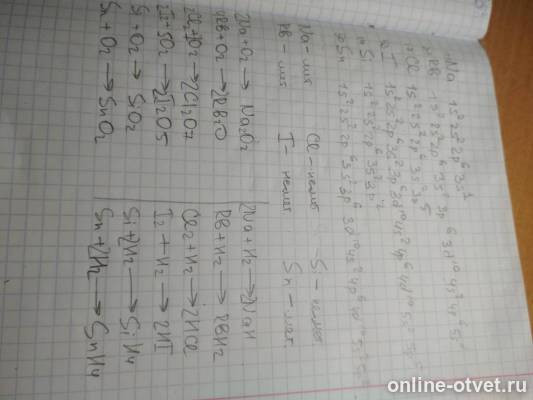 Na 1s² 2s² 2p⁶ 3s¹
RB 1s² 2s² 2p⁶ 3s² 3p⁶ 3d¹⁰ 4s² 4p⁶ 5s¹
Cl 1s² 2s² 2p⁶ 3s² 3p⁵
I 1s² 2s² 2p⁶ 3s² 3p⁶ 3d¹⁰ 4s² 4p⁶ 4d¹⁰ 5s²
Si 1s² 2s² 2p⁶ 3s² 3p²
Sn 1s² 2s² 2p⁶ 3s² 3p⁶ 3d¹⁰ 4s² 4p⁶ 4d¹⁰ 5s²
Na – мет Cl – немет Si – немет
RB – мет I – немет Sn – мет
2Na + O₂ → Na₂O₂ 2Na + H₂ → 2NaH
RB + O₂ → RB₂O RB + H₂ → RBH₂
2Cl₂ + 7O₂ → 2Cl₂O7 Cl₂ + H₂ → 2HCl
2I₂ + 5O₂ → 2I₂O5 I₂ + H₂ → 2HI
Si + O₂ → SiO₂ Si + 2H₂ → SiH₄
Sn + O₂ → SnO₂ Sn + 2H₂ → SnH₄
online-otvet.ru